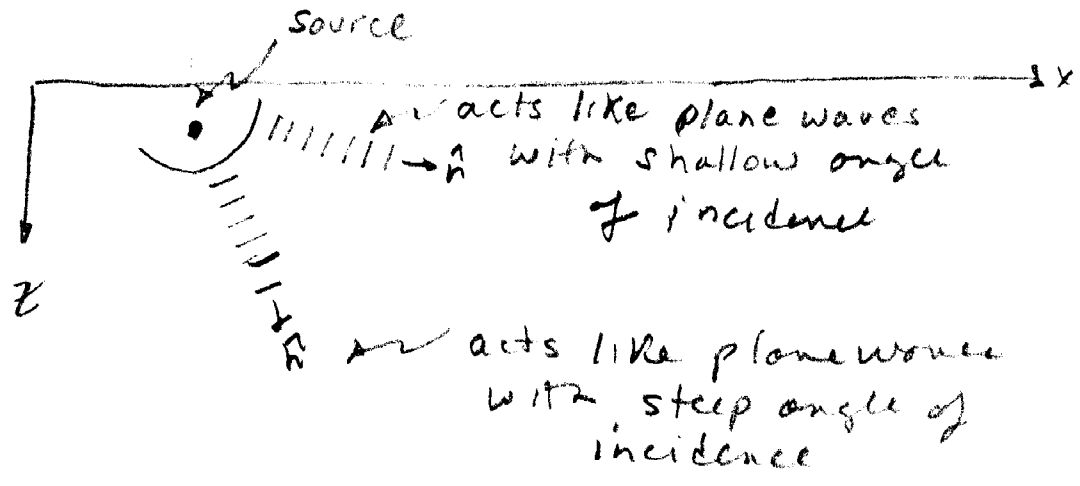 source
x
acts like plane waves
n̂ with shallow angle
of incidence
z
n̂ acts like plane waves
with steep angle of
incidence